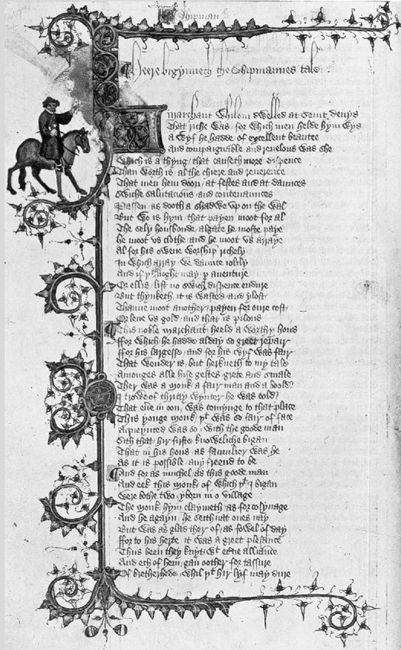 Shipman
Heere bigynneth the Shipmannes tale
A marchant whilom dwelled at Seint Denys
That riche was for which men helde hym wys
A wyf he hadde of excellent beautee
And compaignable and revelous was she
Which is a thyng that causeth more dispence
Than worth is al the chiere and reverence
That men hem doon at festes and at daunces
Swiche salutacions and contenaunces
Passen as dooth a shadwe up on the wal
But wo is hym that payen moot for al
The sely housbonde algate he moste paye
He moot us clothe and he moot us arraye
Al for his owene worshipe richely
In which array we daunce iolily
And if þt he noght may par aventure
Or ellis list no swich dispence endure
But thynketh it is wasted and ylost
Thanne moot another payen for oure cost
Or lene us gold and that is perilous
This noble marchant heeld a worthy hous
ffor which he hadde alday so greet repair
ffor his largesse and for his wyf was fair
That wonder is but herkneth to my tale
Amonges alle hise gestes grete and smale
Ther was a monk a fair man and a boold
I trowe of thritty wynter he was oold
That evere in oon was comynge to that place
This yonge monk þt was so fair of face
Aqueynted was so with the goode man
Sith that hir firste knoweliche bigan
That in his hous as famulier was he
As it is possible any freend to be
And for as muchel as this goode man
And eek this monk of which þt I bigan
Were bothe two yborn in o village
The monk hym claymeth as for cosynage
And he agayn he seith nat ones nay
But was as glad ther of as fowel of day
ffor to his herte it was a greet plesaunce
Thus been they knyt with eterne alliaunce
And ech of hem gan oother for tassure
Of bretherhede whil þt hir lyf may dure